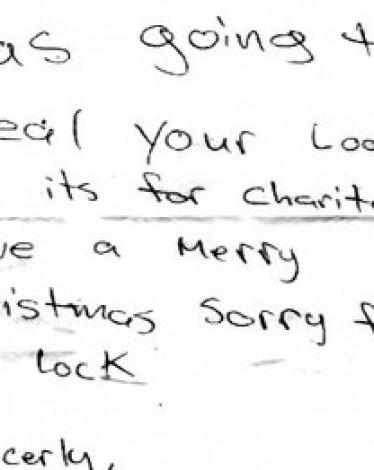 as going t
eal your Loo
its for charit
ve a Merry
istmas Sorry f
lock
cerly,